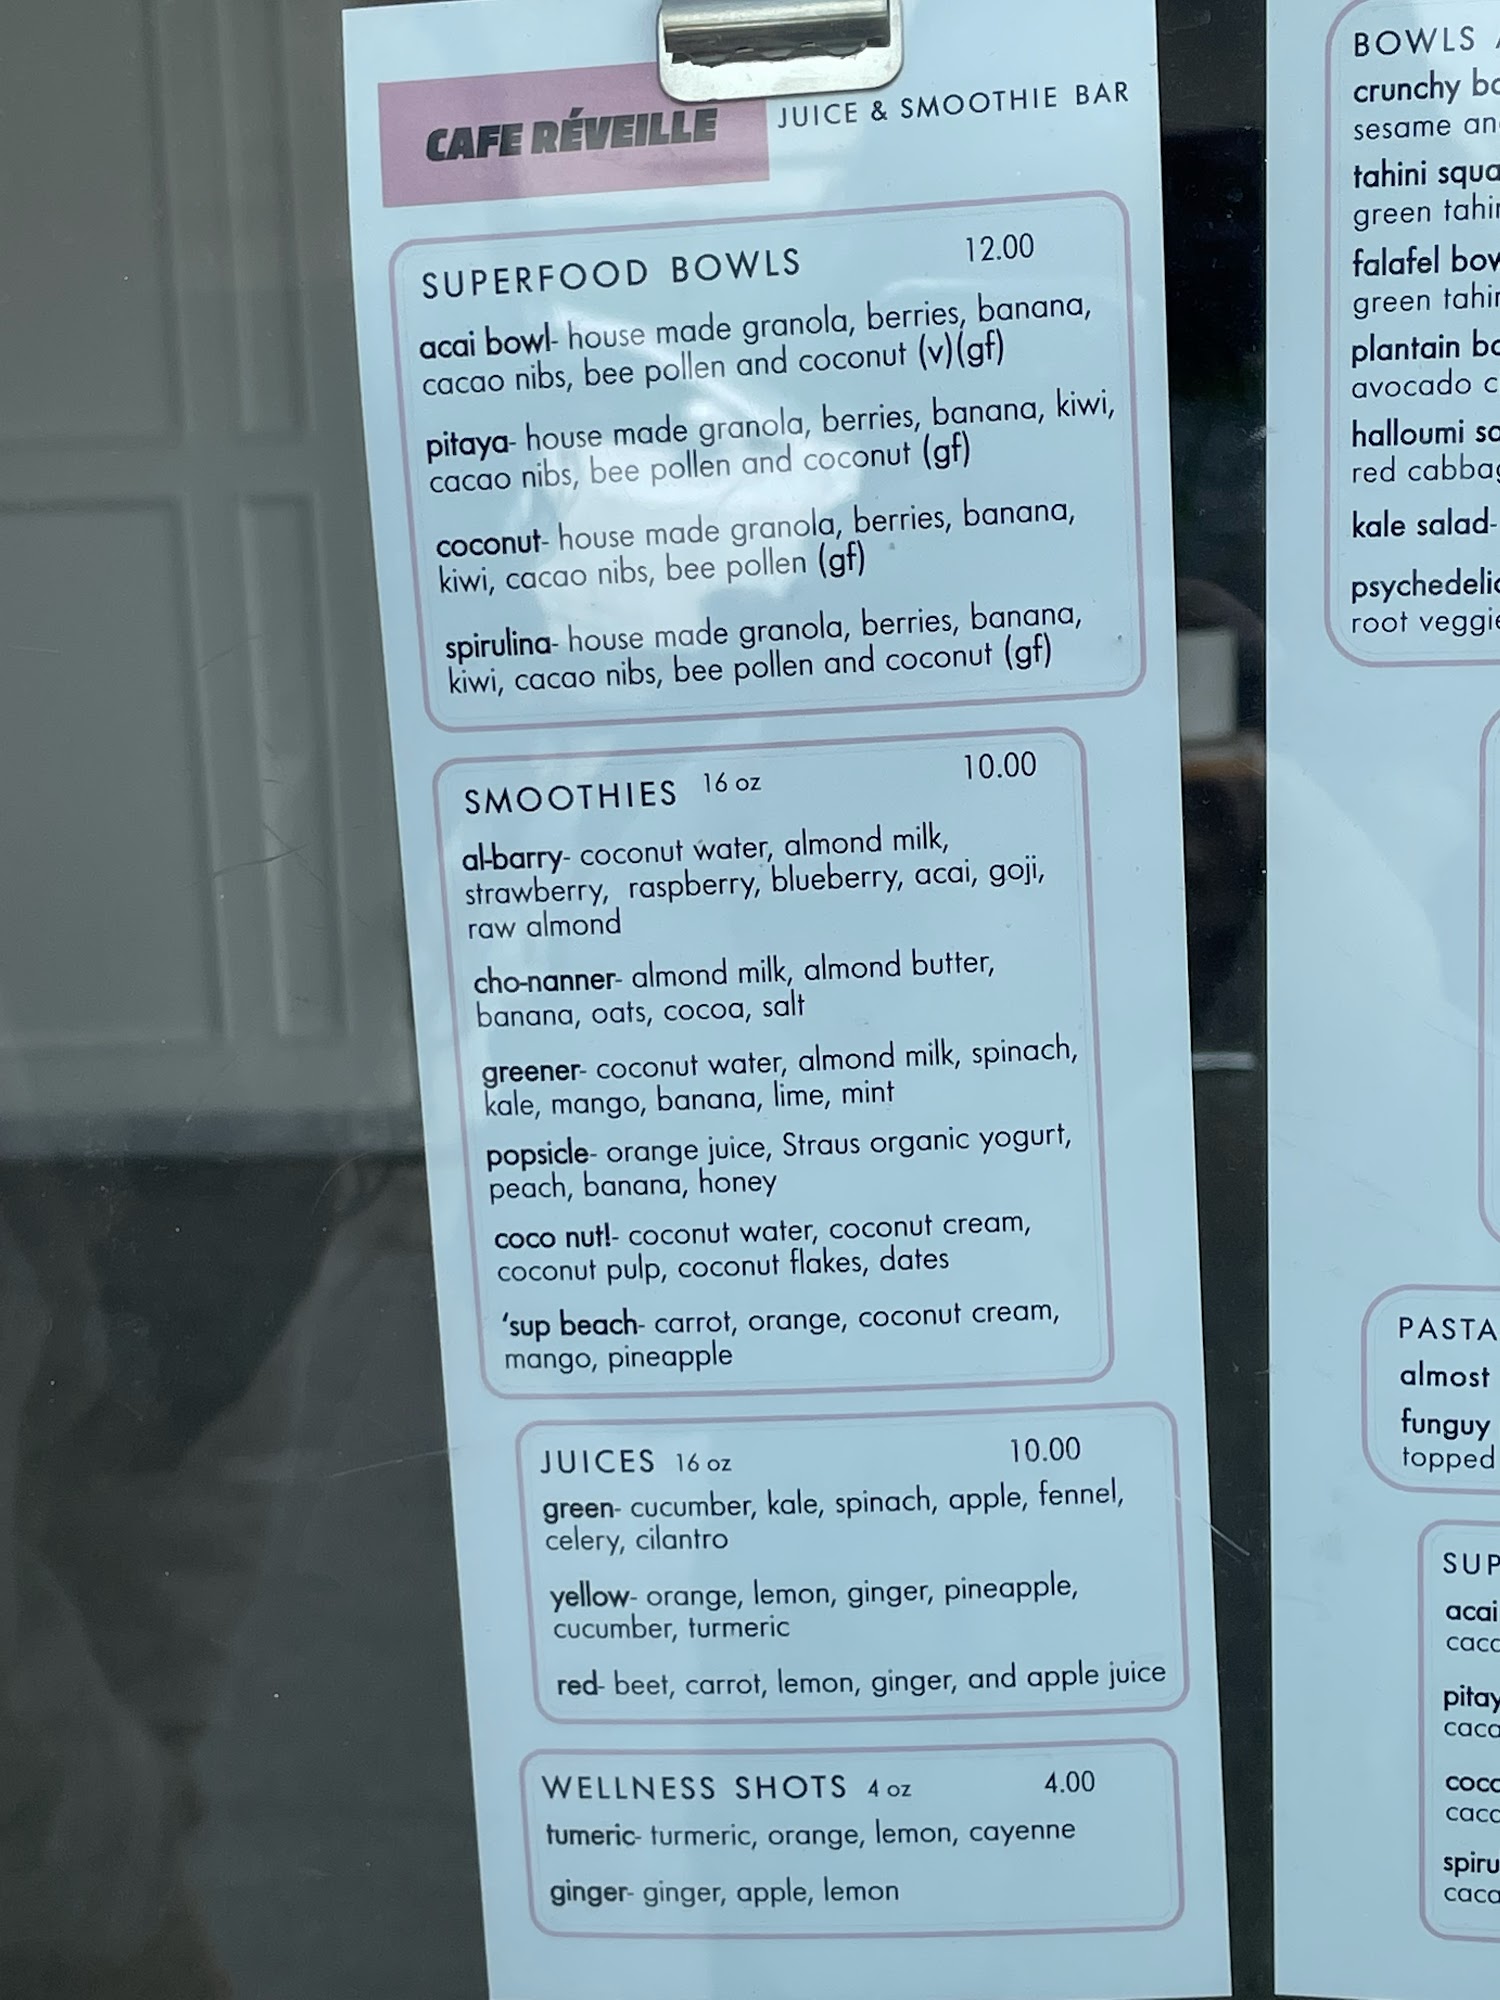 CAFE RÉVEILLE
JUICE & SMOOTHIE BAR
SUPERFOOD BOWLS 12.00
acai bowl- house made granola, berries, banana,
cacao nibs, bee pollen and coconut (v)(gf)
pitaya- house made granola, berries, banana, kiwi,
cacao nibs, bee pollen and coconut (gf)
coconut- house made granola, berries, banana,
kiwi, cacao nibs, bee pollen (gf)
spirulina- house made granola, berries, banana,
kiwi, cacao nibs, bee pollen and coconut (gf)
SMOOTHIES 16 oz 10.00
al-barry- coconut water, almond milk,
strawberry, raspberry, blueberry, acai, goji,
raw almond
cho-nanner- almond milk, almond butter,
banana, oats, cocoa, salt
greener- coconut water, almond milk, spinach,
kale, mango, banana, lime, mint
popsicle- orange juice, Straus organic yogurt,
peach, banana, honey
coco nut!- coconut water, coconut cream,
coconut pulp, coconut flakes, dates
'sup beach- carrot, orange, coconut cream,
mango, pineapple
JUICES 16 oz 10.00
green- cucumber, kale, spinach, apple, fennel,
celery, cilantro
yellow- orange, lemon, ginger, pineapple,
cucumber, turmeric
red- beet, carrot, lemon, ginger, and apple juice
WELLNESS SHOTS 4 oz 4.00
tumeric- turmeric, orange, lemon, cayenne
ginger- ginger, apple, lemon
BOWLS
crunchy
sesame
tahini
green
falafel
green
plantain
avocado
halloumi
red
kale salad-
root
PASTA
almost
funguy
topped
acai